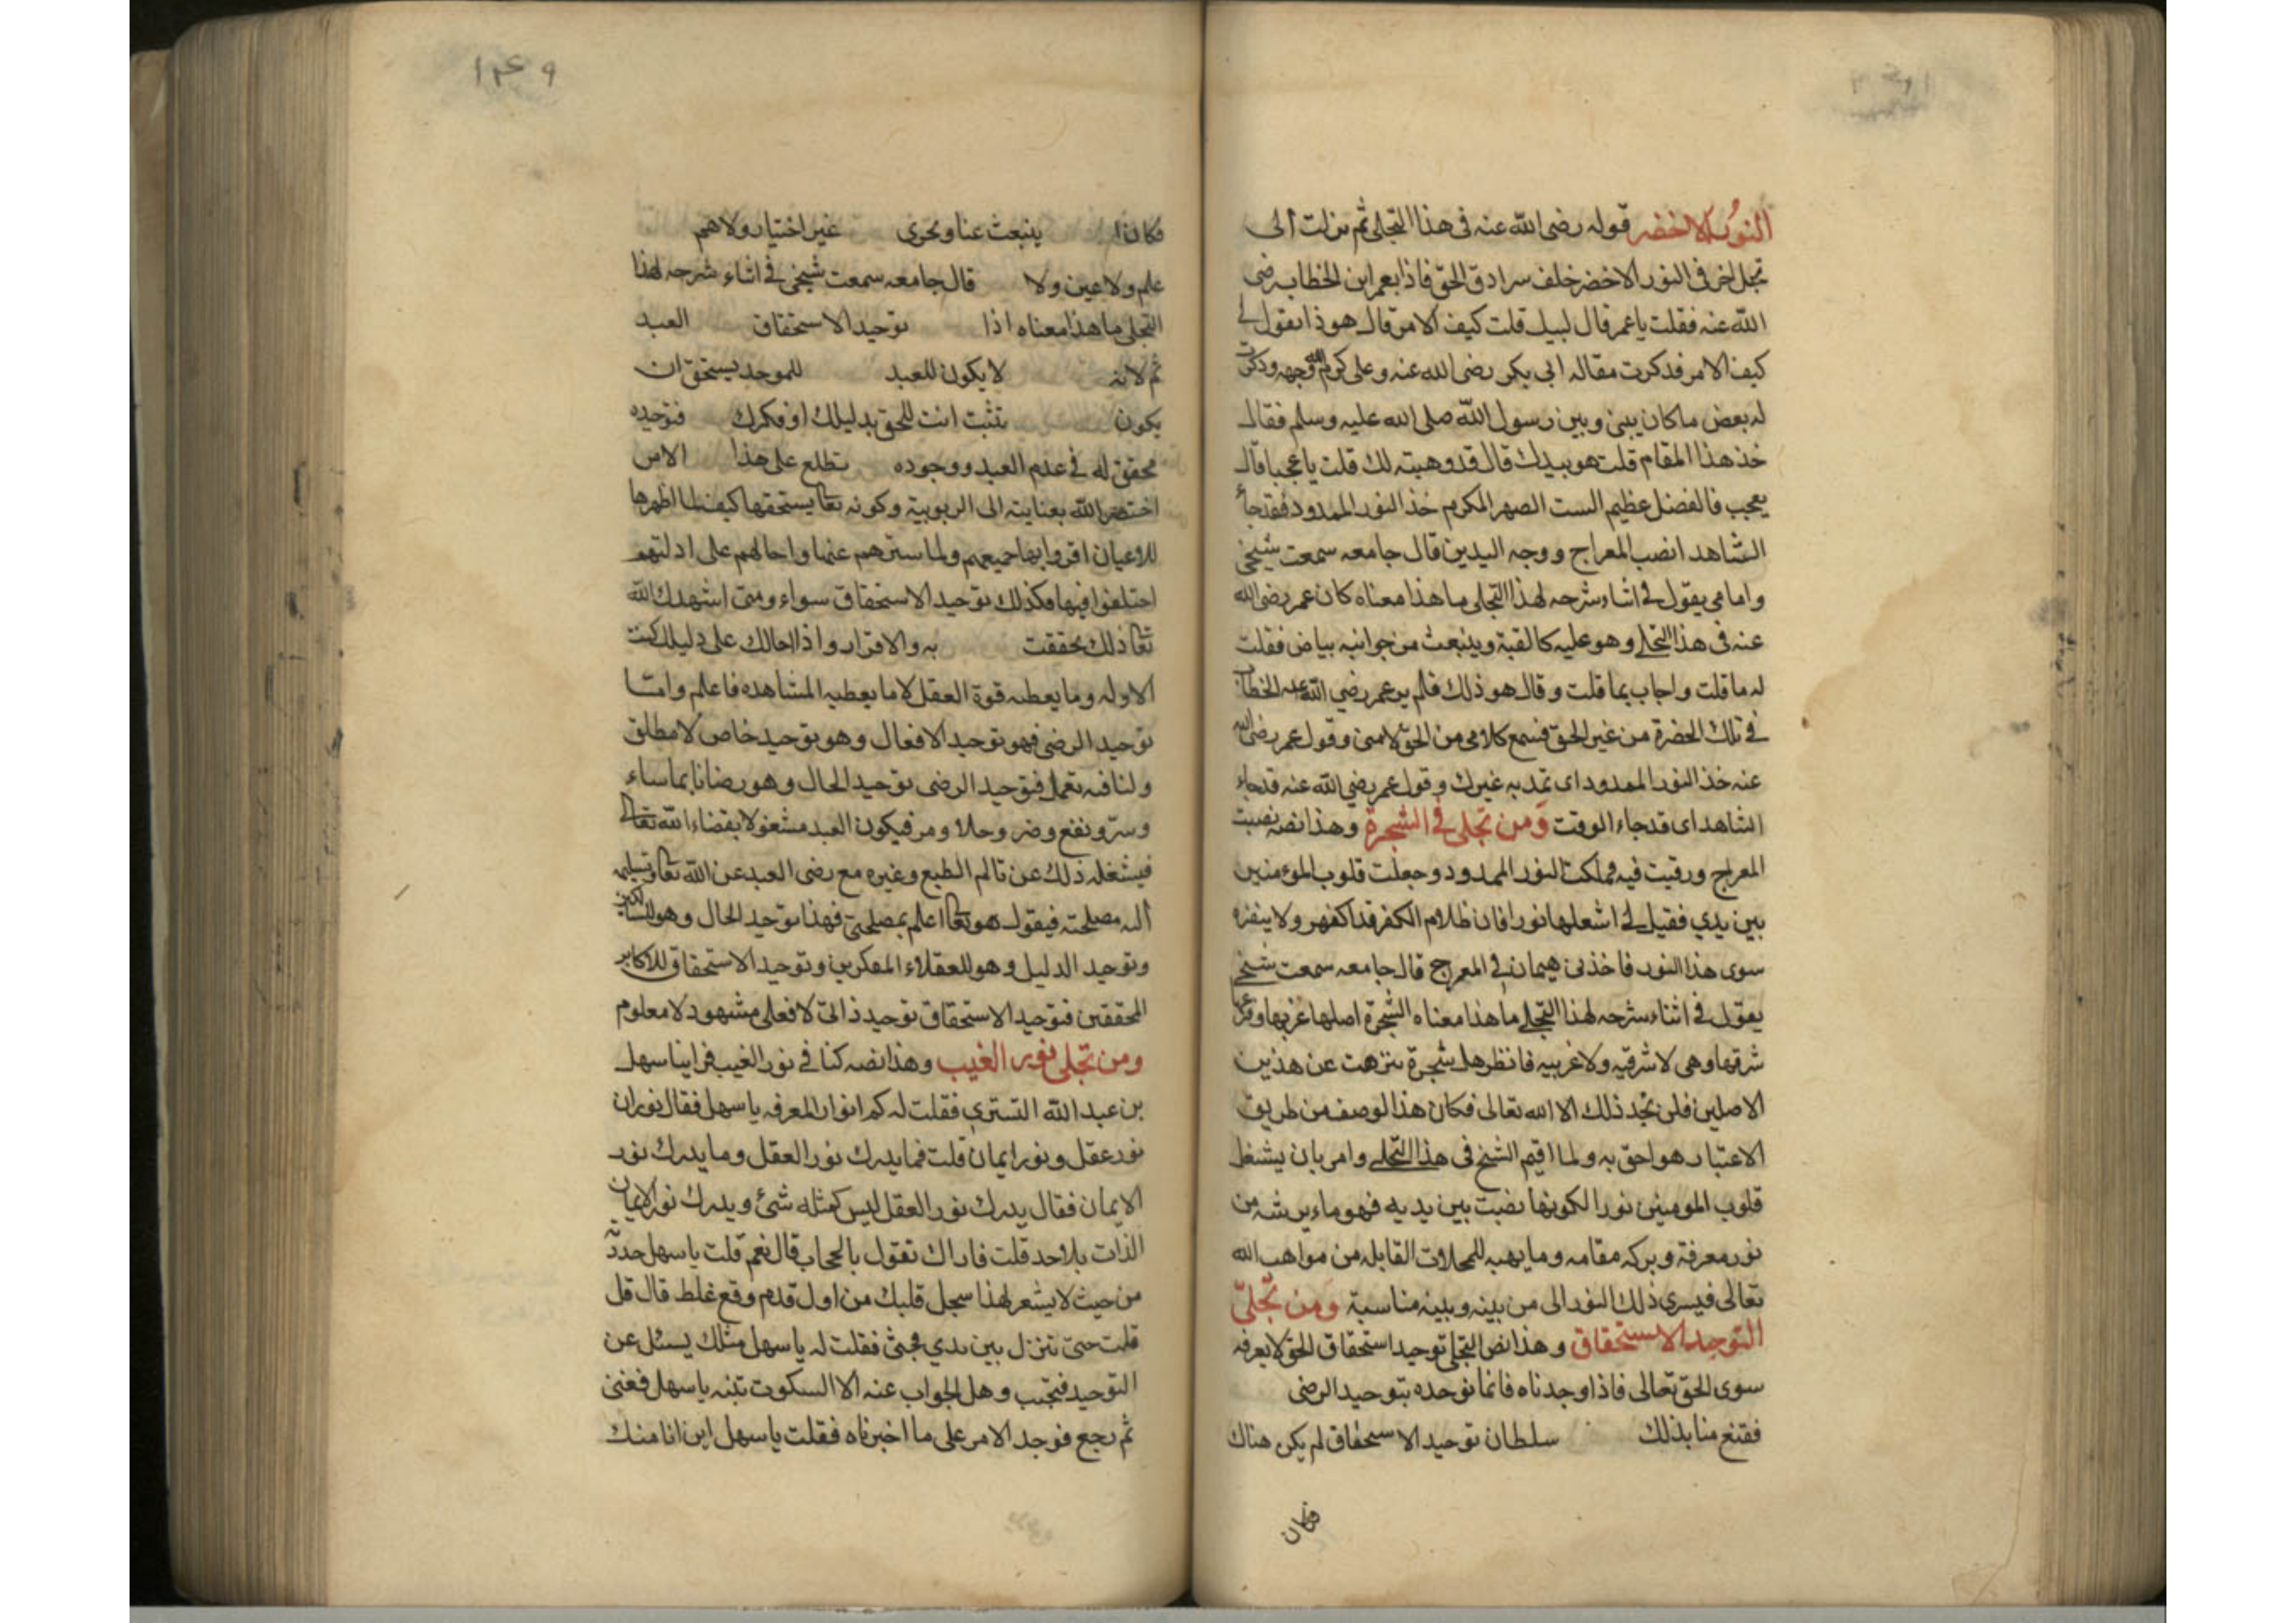 النور الاخضر قوله رضى الله عنه فى هذا التجلى ثم نزلت الى
تجل اخر فى النور الاخضر خلف سرادق الحق فاذا بعمر ابن الخطاب رضى
الله عنه فقلت ياعمر قال لبيك قلت كيف الامر قال هو ذا تقول لى
كيف الامر فذكرت مقاله ابى بكر رضى الله عنه وعلى كرم الله وجهه وذكرت
له بعض ما كان بينى وبين رسول الله صلى الله عليه وسلم فقال
خذ هذا المقام قلت هو بيدك قال قد وهبته لك قلت ياعجبا قال
يعجب فالفضل عظيم الست الصهر المكرم خذ النور الممدود فقد جاء
الشاهد انصب المعراج ووجه اليدين قال جامعه سمعت شيخى
وامامى يقول فى اثناء شرحه لهذا التجلى ما هذا معناه كان عمر رضى الله
عنه فى هذا التجلى وهو عليه كالقبة وينبعث من جوانبه بياض فقلت
له ما قلت واجاب بما قلت وقال هو ذلك فلم ير عمر رضي الله عنه الخطاب
فى تلك الحضرة من غير الحق فسمع كلامى من الحق لا منى وقول عمر رضى الله
عنه خذ النور الممدود اى تمد به غيرك وقول عمر رضي الله عنه قد جاء
الشاهد اى قد جاء الوقت ومن تجلى فى الشجرة وهذا نصه نصبت
المعراج ورقيت فيه فملكت النور الممدود وجعلت قلوب المؤمنين
بين يدي فقيل لى اشعلها نورا فان ظلام الكفر قد اكفهر ولا ينفره
سوى هذا النور فاخذنى هيمان فى المعرج قال جامعه سمعت شيخى
يقول فى اثناء شرحه لهذا التجلى ما هذا معناه الشجرة اصلها غربها وفرعها
شرقها وهى لا شرقيه ولا غربيه فانظر هل شجرة تنزهت عن هذين
الاصلين فلن تجد ذلك الا الله تعالى فكان هذا الوصف من طريق
الاعتبار هو احق به ولما اقيم الشيخ فى هذا التجلى وامر بان يشغل
قلوب المومنين نورا لكونها نصبت بين يديه فهو ما يرشه من
نور معرفة وبركة مقامه وما يهبه للمحلات القابله من مواهب الله
تعالى فيسري ذلك النور الى من بينه وبينه مناسبة ومن تجلى
التوحيد الاستحقاق وهذا نص التجلى توحيد استحقاق الحق لا يعرفه
سوى الحق تعالى فاذا وجدناه فانما نوحده بتوحيد الرضى
فقنع منا بذلك سلطان توحيد الاستحقاق لم يكن هناك
فكان
١٤٩
فكان ينبعث عنا ويجرى غير اختيار ولا هم
علم ولا عين ولا قال جامعه سمعت شيخى فى اثناء شرحه لهذا
التجلى ما هذا معناه اذا توحيد الاستحقاق العبد
ثم لانه لا يكون للعبد للموحد يستحق ان
يكون تثبت انت للحق بدليلك او فكرك فتوحيده
محقق له فى عدم العبد ووجوده تطلع على هذا الامر
اختصه الله بعنايته الى الربوبية وكونه تعا يستحقها كيف لما اظهرها
للاعيان اقروا بها جميعهم ولما سترهم عنها واحالهم على ادلتهم
اختلفوا فيها فكذلك توحيد الاستحقاق سواء ومتى اشهدك الله
تعا ذلك تحققت به والاقرار واذا احالك على دليلك كنت
الاوله وما يعطيه قوة العقل لا ما يعطيه المشاهده فاعلم واما
توحيد الرضى فهو توحيد الافعال وهو توحيد خاص لا مطلق
ولنا فيه تعمل فتوحيد الرضى توحيد الحال وهو رضانا بما ساء
وسر ونفع وضر وحلا ومر فيكون العبد مشغولا بقضاء الله تعالى
فيشغله ذلك عن تالم الطبع وغيره مع رضى العبد عن الله تعا وتسليمه
اليه مصلحته فيقول هو تعا اعلم بمصلحتى فهذا توحيد الحال وهو للسالكين
وتوحيد الدليل وهو للعقلاء المفكرين وتوحيد الاستحقاق للاكابر
المحققين فتوحيد الاستحقاق توحيد ذاتى لا فعلى مشهود لا معلوم
ومن تجلى نور الغيب وهذا نصه كنا فى نور الغيب فراينا سهل
بن عبد الله التستري فقلت له كم انوار المعرفه ياسهل فقال نوران
نور عقل ونور ايمان قلت فما يدرك نور العقل وما يدرك نور
الايمان فقال يدرك نور العقل ليس كمثله شئ ويدرك نور الايمان
الذات بلا حد قلت فاراك تقول بالحجاب قال نعم قلت ياسهل حددته
من حيث لا يشعر لهذا سجل قلبك من اول قدم وقع غلط قال قل
قلت حتى تنزل بين يدي فجثى فقلت له ياسهل مثلك يسئل عن
التوحيد فيجيب وهل الجواب عنه الا السكوت تنبه ياسهل ففنى
ثم رجع فوجد الامر على ما اخبرناه فقلت ياسهل اين انا منك